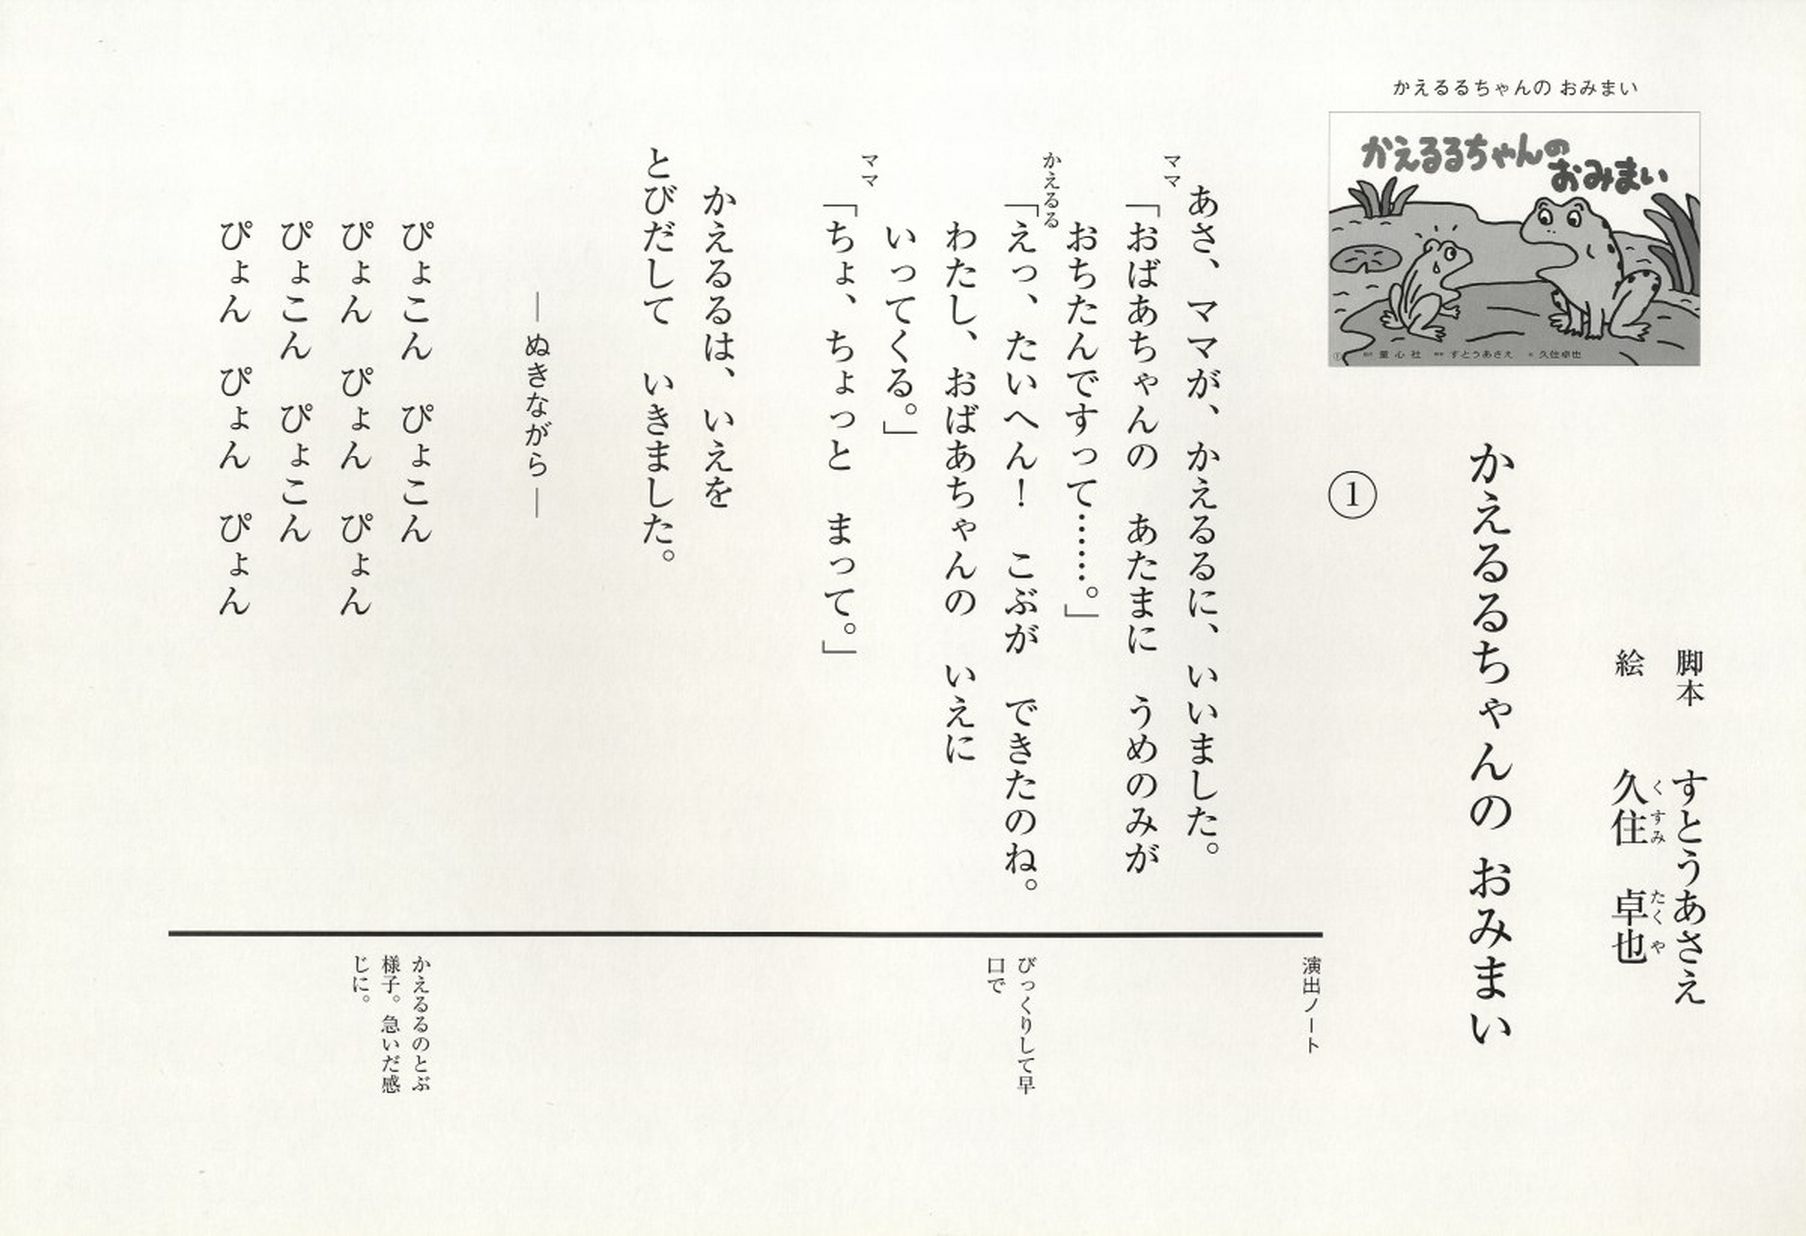 かえるるちゃんの おみまい
かえるるちゃんの
おみまい
① 童心社 すとうあさえ 久住卓也
脚本 すとうあさえ
絵 久住 卓也
くすみ たくや
かえるるちゃんの おみまい
①
あさ、ママが、かえるるに、いいました。
ママ
「おばあちゃんの あたまに うめのみが
おちたんですって……。」
かえるる
「えっ、たいへん! こぶが できたのね。
わたし、おばあちゃんの いえに
いってくる。」
ママ
「ちょ、ちょっと まって。」
かえるるは、いえを
とびだして いきました。
―ぬきながら―
ぴょこん ぴょこん
ぴょん ぴょん ぴょん
ぴょこん ぴょこん
ぴょん ぴょん ぴょん
演出ノート
びっくりして早
口で
かえるるのとぶ
様子。急いだ感
じに。